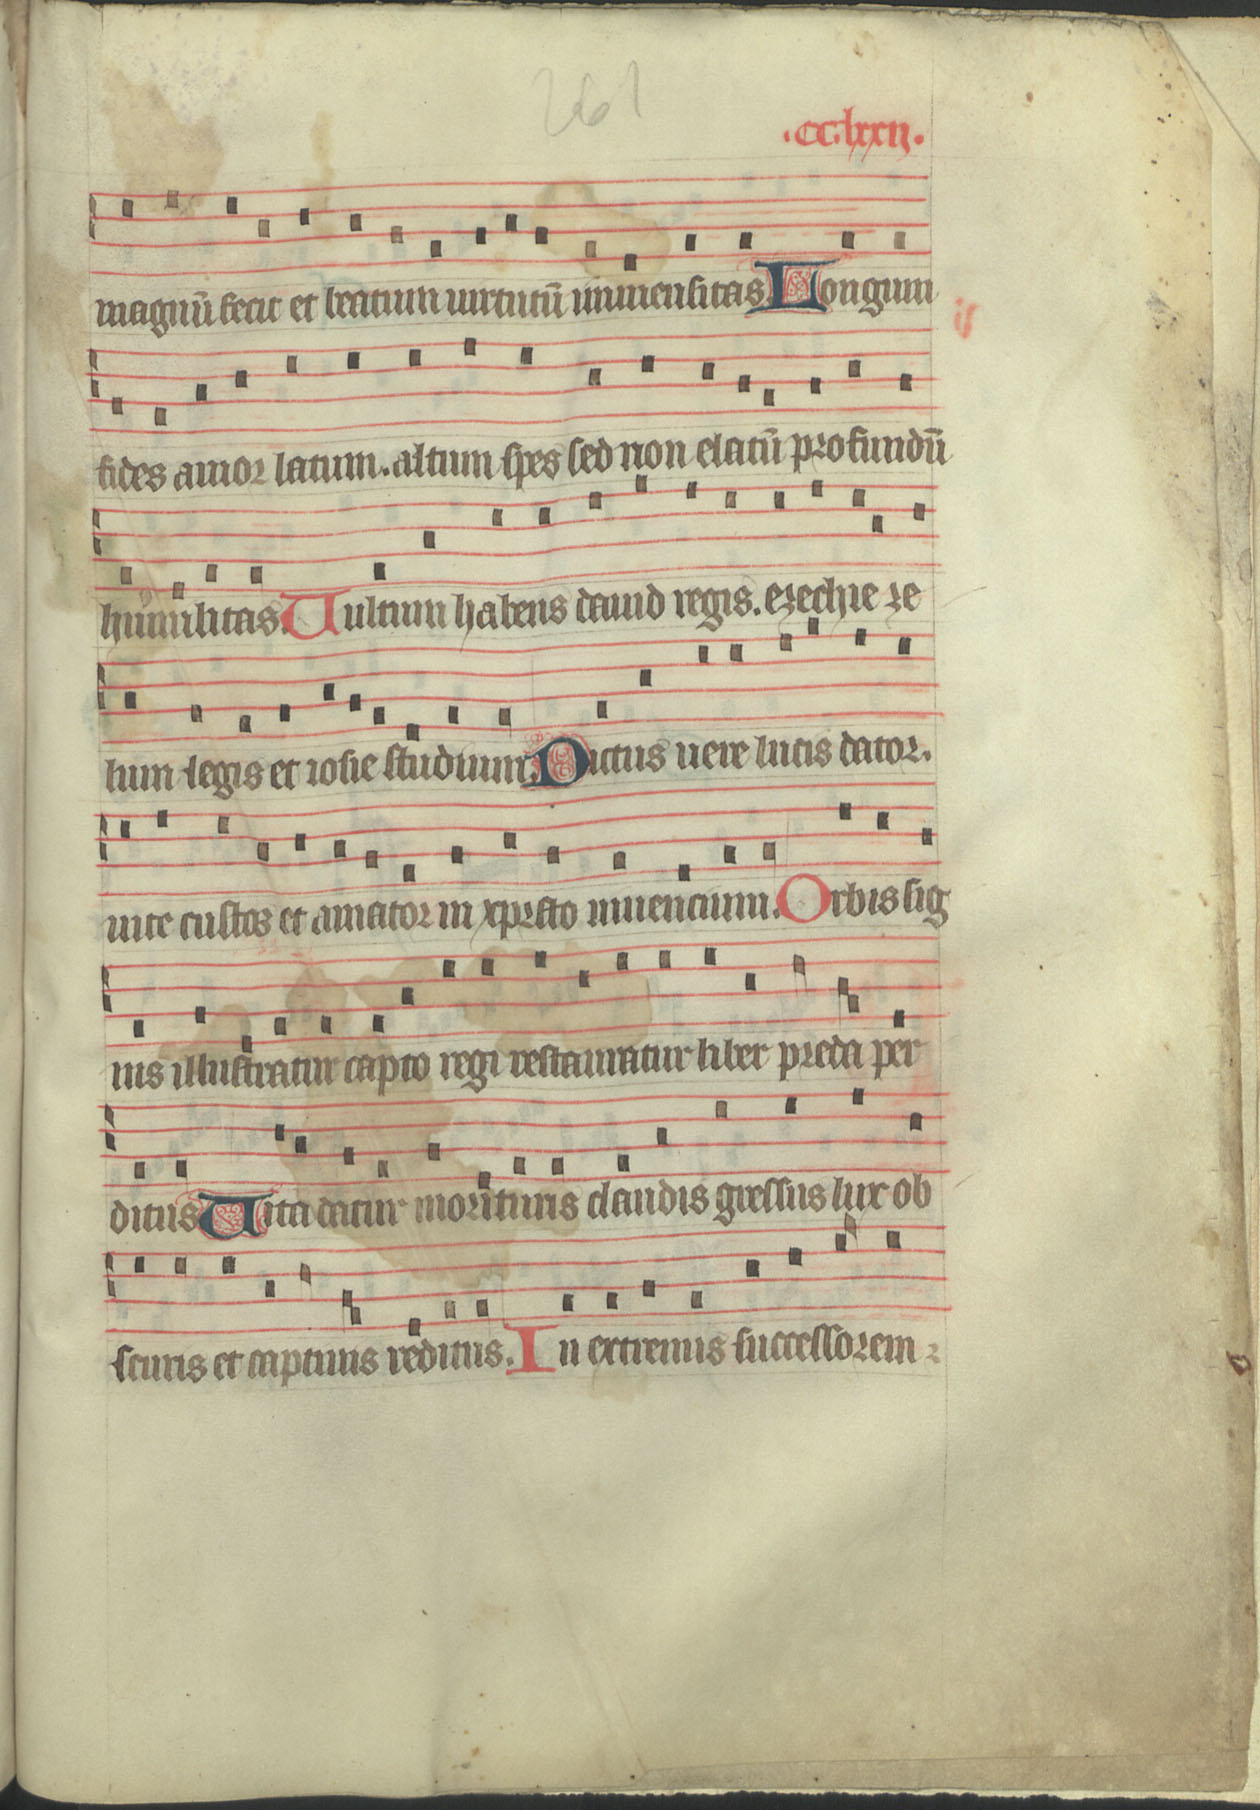 261
.cclxxii.
magnū fecit et beatum uirtutū inmensitas. Longum
fides amor latum. altum spes sed non elatū profundū
humilitas. Uultum habens dauid regis. ezechie ze
lum legis et iosie studium. Dictus uere lucis dator.
uite custos et amator in xpristo uiuencium. Orbis sig
nis illustratur capto regi restauratur liber preda per
ditus Uita datur morituris claudis gressus lux ob
scuris et captiuis reditus. In extremis successorem